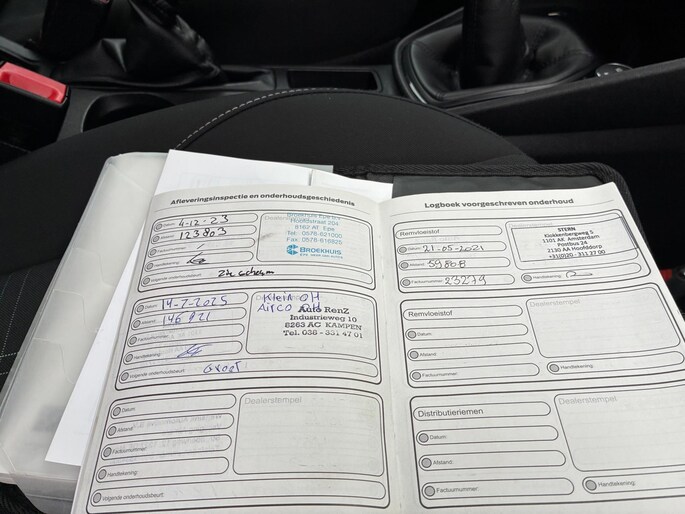 Afleveringsinspectie en onderhoudsgeschiedenis
Datum: 4-12-23
Afstand: 123803
Handtekening:
Volgende onderhoudsbeurt: Zie scherm
Broekhuis Epe
Hoofdstraat 204
8162 AT Epe
Tel: 0578-621000
Fax: 0578-616925
BROEKHUIS
Datum: 14-7-2025
Afstand: 146921
Handtekening:
Volgende onderhoudsbeurt: Groot
Klein OH
Airco OH
Auto RenZ
Industrieweg 10
8263 AC KAMPEN
Tel. 038 - 331 47 01
Datum
Dealerstempel
Afstand:
Factuurnummer:
Handtekening:
Volgende onderhoudsbeurt:
Logboek voorgeschreven onderhoud
Remvloeistof
Datum: 21-05-2021
Afstand: 59808
Factuurnummer: 23279
Handtekening:
STERN
Klokkenbergweg 5
1101 AK Amsterdam
Postbus 24
2130 AA Hoofddorp
Remvloeistof
Dealerstempel
Datum:
Afstand
Factuurnummer:
Handtekening:
Distributieriemen
Dealerstempel
Datum:
Afstand:
Factuurnummer:
Handtekening: